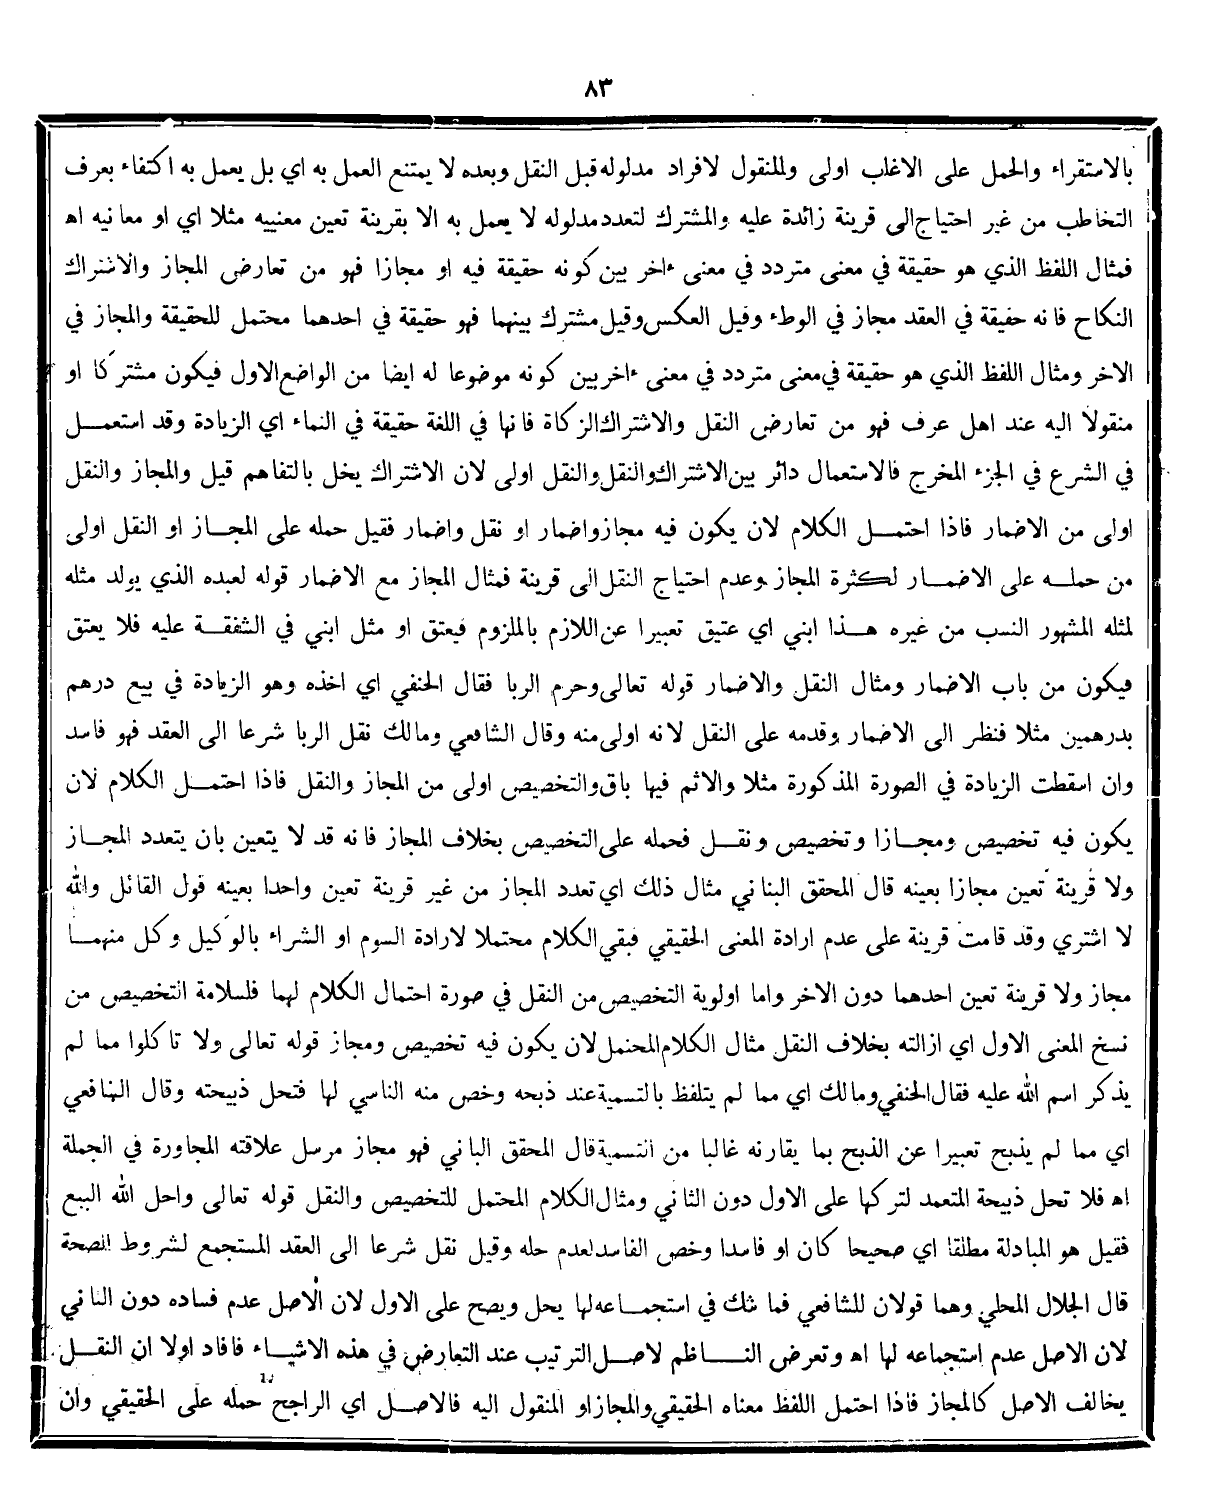 ٨٣
بالاستقراء والحمل على الاغلب اولى وللمنقول لافراد مدلوله قبل النقل وبعده لا يمتنع العمل به اي بل يعمل به اكتفاء بعرف
التخاطب من غير احتياج الى قرينة زائدة عليه والمشترك لتعدد مدلوله لا يعمل به الا بقرينة تعين معنييه مثلا اي او معانيه اه
فمثال اللفظ الذي هو حقيقة في معنى متردد في معنى ءاخر بين كونه حقيقة فيه او مجازا فهو من تعارض المجاز والاشتراك
النكاح فانه حقيقة في العقد مجاز في الوطء وقيل العكس وقيل مشترك بينهما فهو حقيقة في احدهما محتمل للحقيقة والمجاز في
الاخر ومثال اللفظ الذي هو حقيقة في معنى متردد في معنى ءاخر بين كونه موضوعا له ايضا من الواضع الاول فيكون مشتركا او
منقولا اليه عند اهل عرف فهو من تعارض النقل والاشتراك الزكاة فانها في اللغة حقيقة في النماء اي الزيادة وقد استعمل
في الشرع في الجزء المخرج فالاستعمال دائر بين الاشتراك والنقل والنقل اولى لان الاشتراك يخل بالتفاهم قيل والمجاز والنقل
اولى من الاضمار فاذا احتمل الكلام لان يكون فيه مجاز واضمار او نقل واضمار فقيل حمله على المجاز او النقل اولى
من حمله على الاضمار لكثرة المجاز وعدم احتياج النقل الى قرينة فمثال المجاز مع الاضمار قوله لعبده الذي يولد مثله
لمثله المشهور النسب من غيره هذا ابني اي عتيق تعبيرا عن اللازم بالملزوم فيعتق او مثل ابني في الشفقة عليه فلا يعتق
فيكون من باب الاضمار ومثال النقل والاضمار قوله تعالى وحرم الربا فقال الحنفي اي اخذه وهو الزيادة في بيع درهم
بدرهمين مثلا فنظر الى الاضمار وقدمه على النقل لانه اولى منه وقال الشافعي ومالك نقل الربا شرعا الى العقد فهو فاسد
وان اسقطت الزيادة في الصورة المذكورة مثلا والاثم فيها باق والتخصيص اولى من المجاز والنقل فاذا احتمل الكلام لان
يكون فيه تخصيص ومجازا وتخصيص ونقل فحمله على التخصيص بخلاف المجاز فانه قد لا يتعين بان يتعدد المجاز
ولا قرينة تعين مجازا بعينه قال المحقق البناني مثال ذلك اي تعدد المجاز من غير قرينة تعين واحدا بعينه قول القائل والله
لا اشتري وقد قامت قرينة على عدم ارادة المعنى الحقيقي فبقي الكلام محتملا لارادة السوم او الشراء بالوكيل وكل منهما
مجاز ولا قرينة تعين احدهما دون الاخر واما اولوية التخصيص من النقل في صورة احتمال الكلام لهما فلسلامة التخصيص من
نسخ المعنى الاول اي ازالته بخلاف النقل مثال الكلام المحتمل لان يكون فيه تخصيص ومجاز قوله تعالى ولا تاكلوا مما لم
يذكر اسم الله عليه فقال الحنفي ومالك اي مما لم يتلفظ بالتسمية عند ذبحه وخص منه الناسي لها فتحل ذبيحته وقال الشافعي
اي مما لم يذبح تعبيرا عن الذبح بما يقارنه غالبا من التسمية قال المحقق الباني فهو مجاز مرسل علاقته المجاورة في الجملة
اه فلا تحل ذبيحة المتعمد لتركها على الاول دون الثاني ومثال الكلام المحتمل للتخصيص والنقل قوله تعالى واحل الله البيع
فقيل هو المبادلة مطلقا اي صحيحا كان او فاسدا وخص الفاسد لعدم حله وقيل نقل شرعا الى العقد المستجمع لشروط الصحة
قال الجلال المحلي وهما قولان للشافعي فما شك في استجماعه لها يحل ويصح على الاول لان الاصل عدم فساده دون الثاني
لان الاصل عدم استجماعه لها اه وتعرض الناظم لاصل الترتيب عند التعارض في هذه الاشياء فافاد اولا ان النقل
يخالف الاصل كالمجاز فاذا احتمل اللفظ معناه الحقيقي والمجاز او المنقول اليه فالاصل اي الراجح حمله على الحقيقي وان